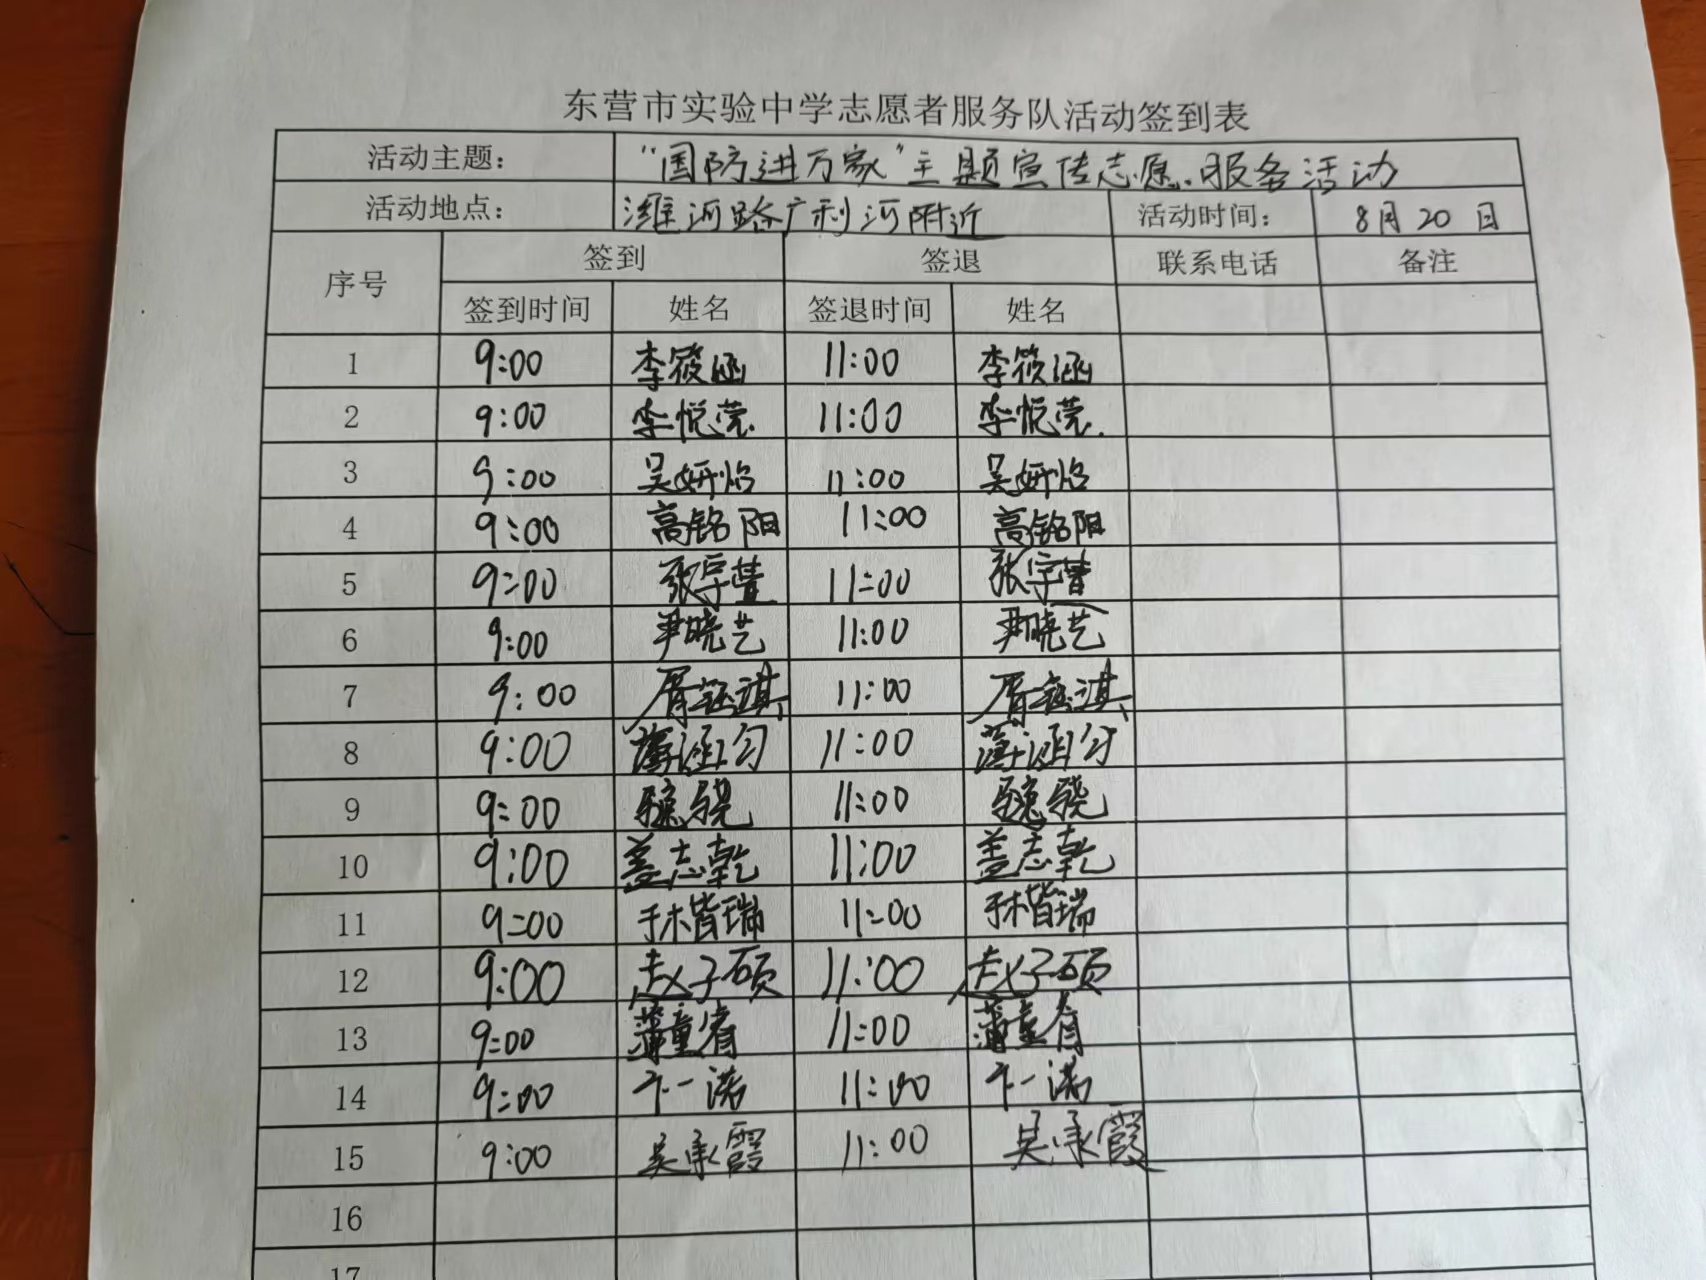 东营市实验中学志愿者服务队活动签到表
活动主题： “国防进万家”主题宣传志愿服务活动
活动地点： 潍河路广利河附近 活动时间： 8月20日
序号 签到 签退 联系电话 备注
签到时间 姓名 签退时间 姓名
1 9:00 李筱涵 11:00 李筱涵
2 9:00 李悦莞 11:00 李悦莞
3 9:00 吴妍焰 11:00 吴妍焰
4 9:00 高铭阳 11:00 高铭阳
5 9:00 张宇 11:00 张宇
6 9:00 尹晓艺 11:00 尹晓艺
7 9:00 胥钰淇 11:00 胥钰淇
8 9:00 薄涵匀 11:00 薄涵匀
9 9:00 骁 11:00 骁
10 9:00 盖志乾 11:00 盖志乾
11 9:00 楷瑞 11:00 楷瑞
12 9:00 赵子硕 11:00 赵子硕
13 9:00 薄童 11:00 薄童
14 9:00 一诺 11:00 一诺
15 9:00 吴承霞 11:00 吴承霞
16
17